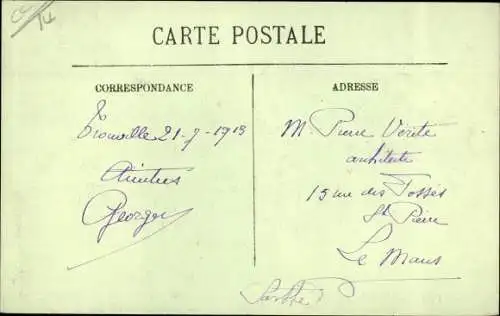 CARTE POSTALE
CORRESPONDANCE
Trouville 21-7-1919
Amitiés
Georges
ADRESSE
M. Pierre Vérité
architecte
15 rue des Fossés
St Pierre
Le Mans
Sarthe